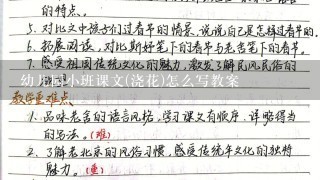 的特点。
5. 对比文中孩子们过春节的情景,说说自己是怎样过春节的。
6. 拓展阅读,对比斯妤笔下的春节与老舍笔下的春节。
7. 感受祖国传统文化的魅力,激发了解民风民俗的
幼儿园小班课文(浇花)怎么写教案
教学重难点
1. 品味老舍的语言风格,学习课文有顺序、详略得当
的写法。(难)
2. 了解老北京的风俗习惯,感受传统年文化的独特
魅力。(重)